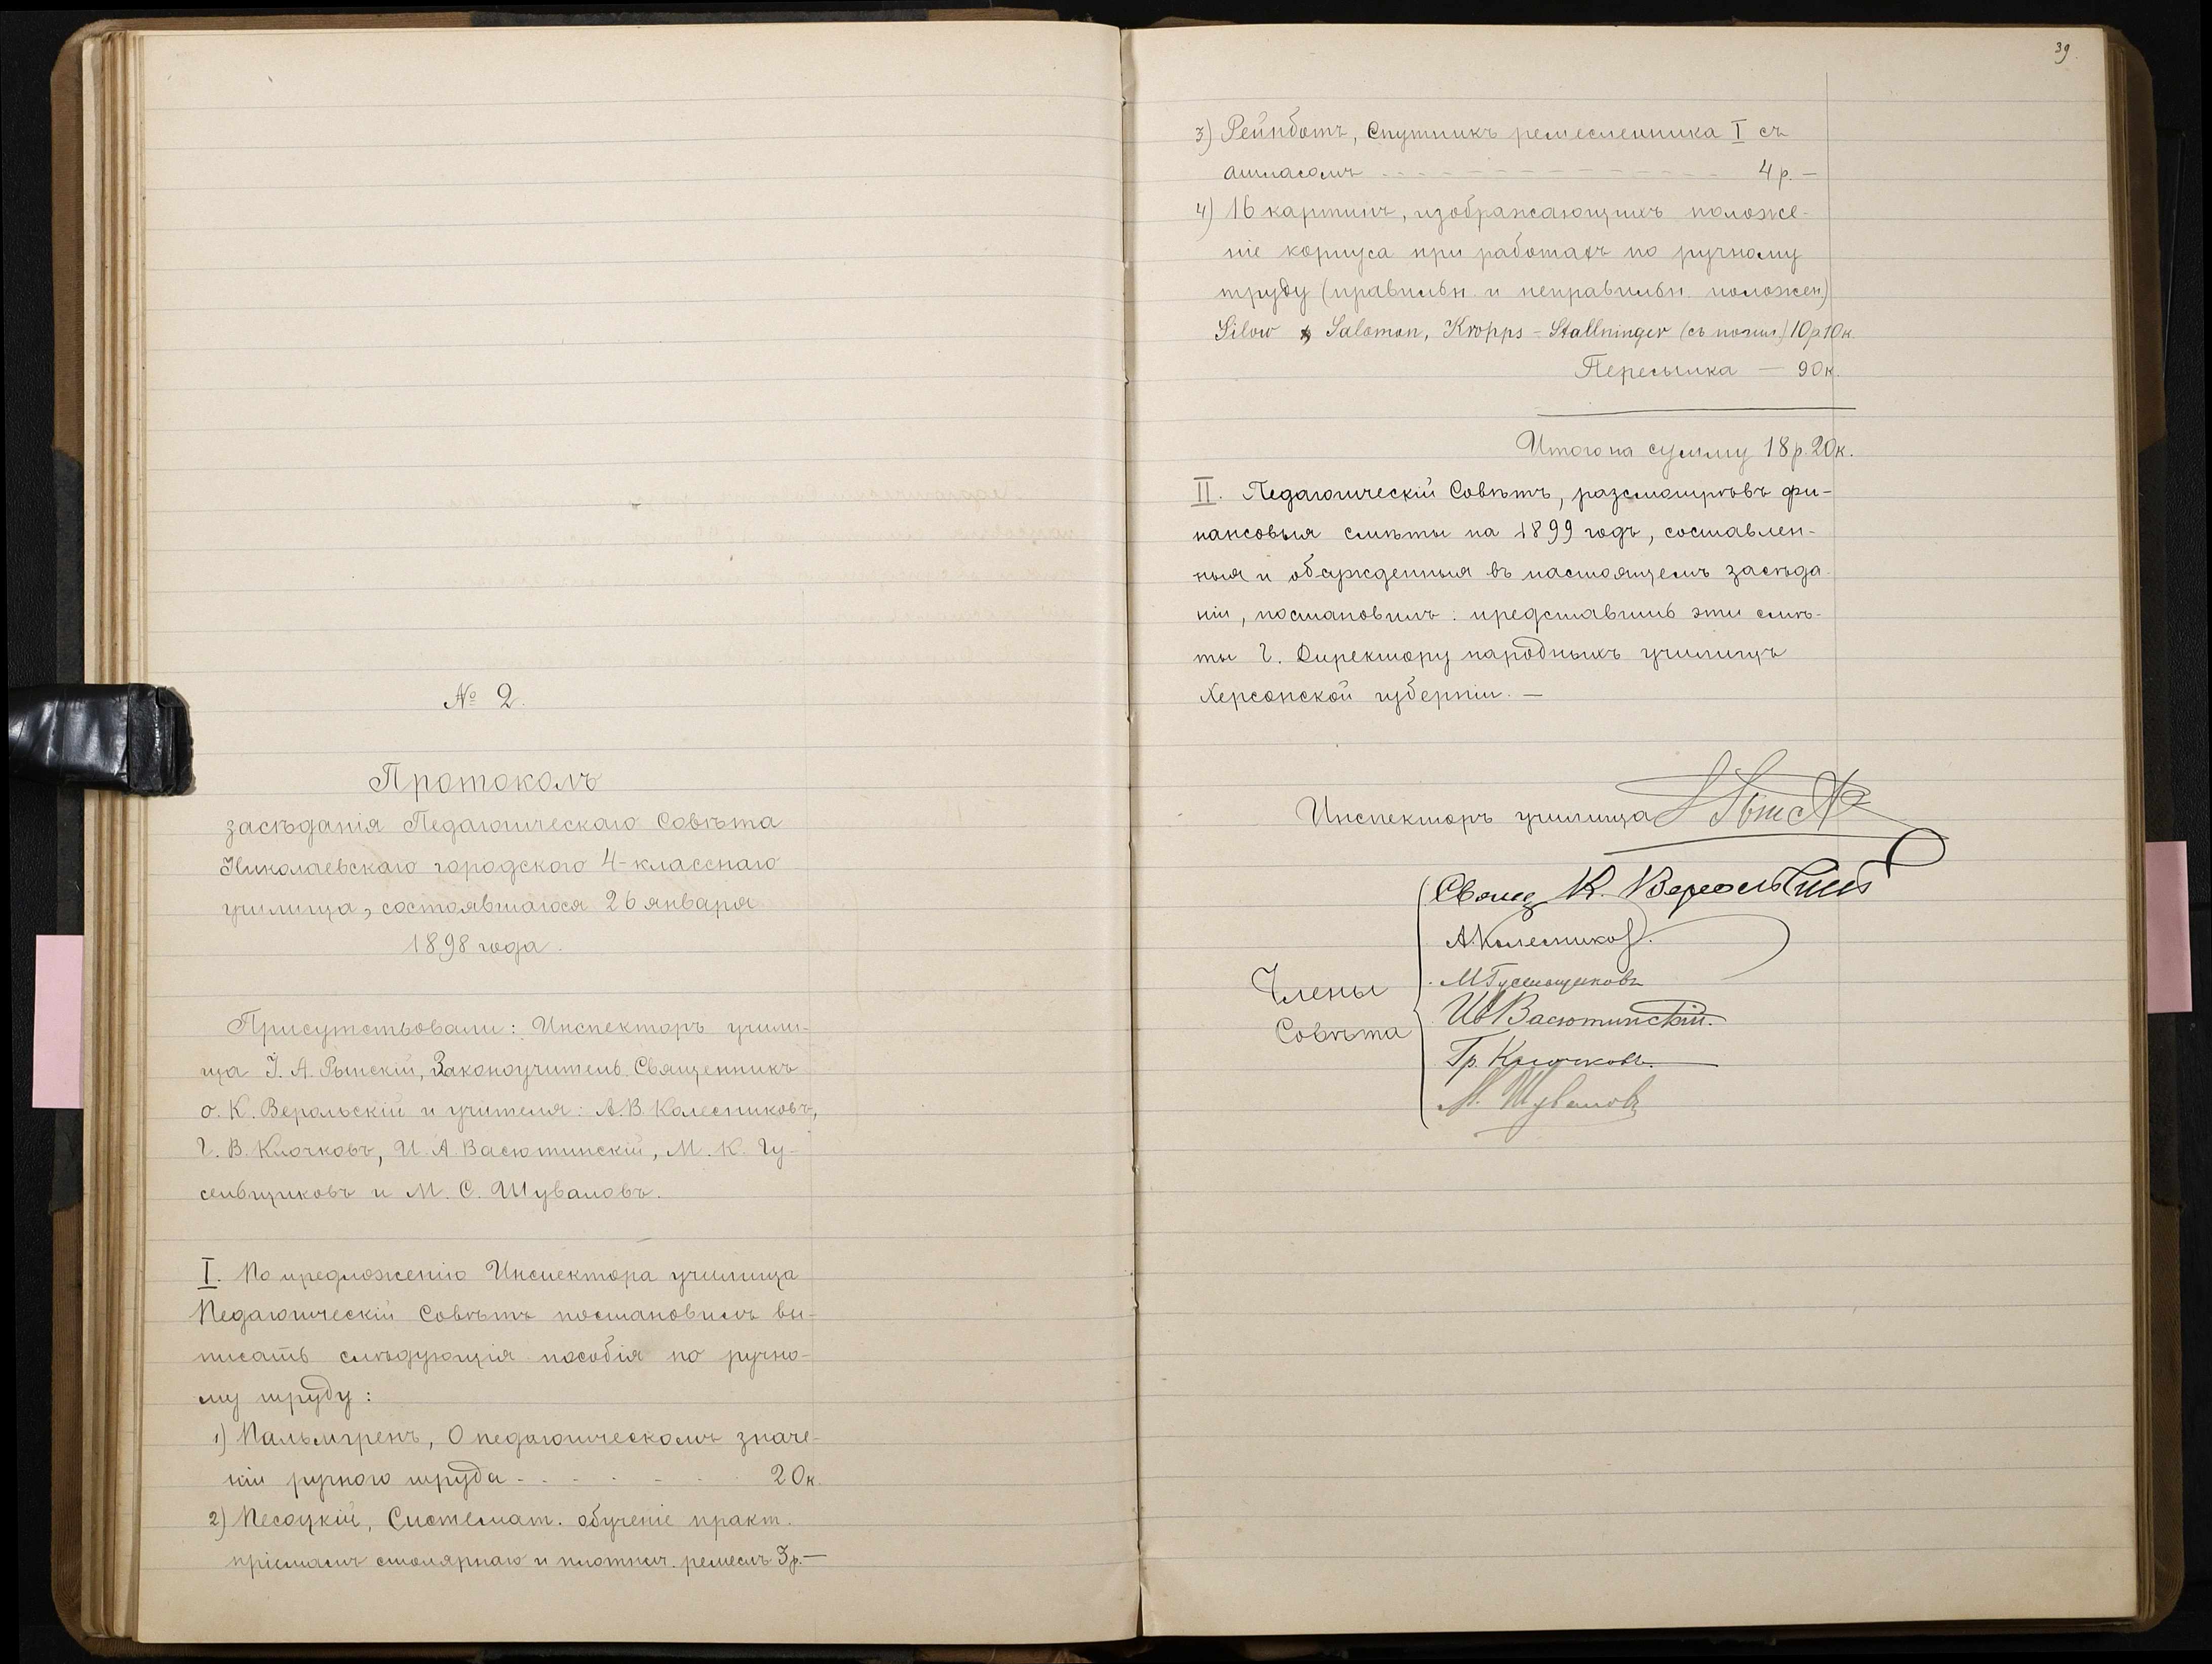 № 2.
Протоколъ
засѣданія Педагогическаго Совѣта
Николаевскаго городского 4-класснаго
училища, состоявшагося 26 января
1898 года.
Присутствовали: Инспекторъ учили-
ща І. А. Рыпскій, Законоучитель Священникъ
о. К. Верольскій и учителя: А. В. Колесниковъ,
Г. В. Клочковъ, И. А. Васютинскій, М. К. Гу-
сельщиковъ и М. С. Шуваловъ.
I. По предложенію Инспектора училища
Педагогическій Совѣтъ постановилъ вы-
писать слѣдующія пособія по ручно-
му труду:
1) Пальмгренъ, О педагогическомъ значе-
ніи ручного труда - - - - - - 20к.
2) Песоцкій, Системат. обученіе практ.
пріемамъ столярнаго и плотнич. ремеслъ 3р.—
39.
3) Рейнботъ, Спутникъ ремесленника I съ
атласомъ - - - - - - - - - - - - - 4 р. —
4) 16 картинъ, изображающихъ положе-
ніе корпуса при работахъ по ручному
труду (правильн. и неправильн. положен)
Silow Salomon, Kropps - Stallninger (съ пошл) 10р10к.
Пересылка — 90к.
Итого на сумму 18 р. 20к.
II. Педагогическій Совѣтъ, разсмотрѣвъ фи-
нансовыя смѣты на 1899 годъ, составлен-
ныя и обсужденныя въ настоящемъ засѣда-
ніи, постановилъ: представить эти смѣ-
ты Г. Директору народныхъ училищъ
Херсонской губерніи. —
Инспекторъ училища
Члены
Совѣта
Свящ К. Верольскій
А. Колесников.
М Гусельщиковъ
Ив Васютинскій.
Гр. Клочковъ.
М. Шуваловъ